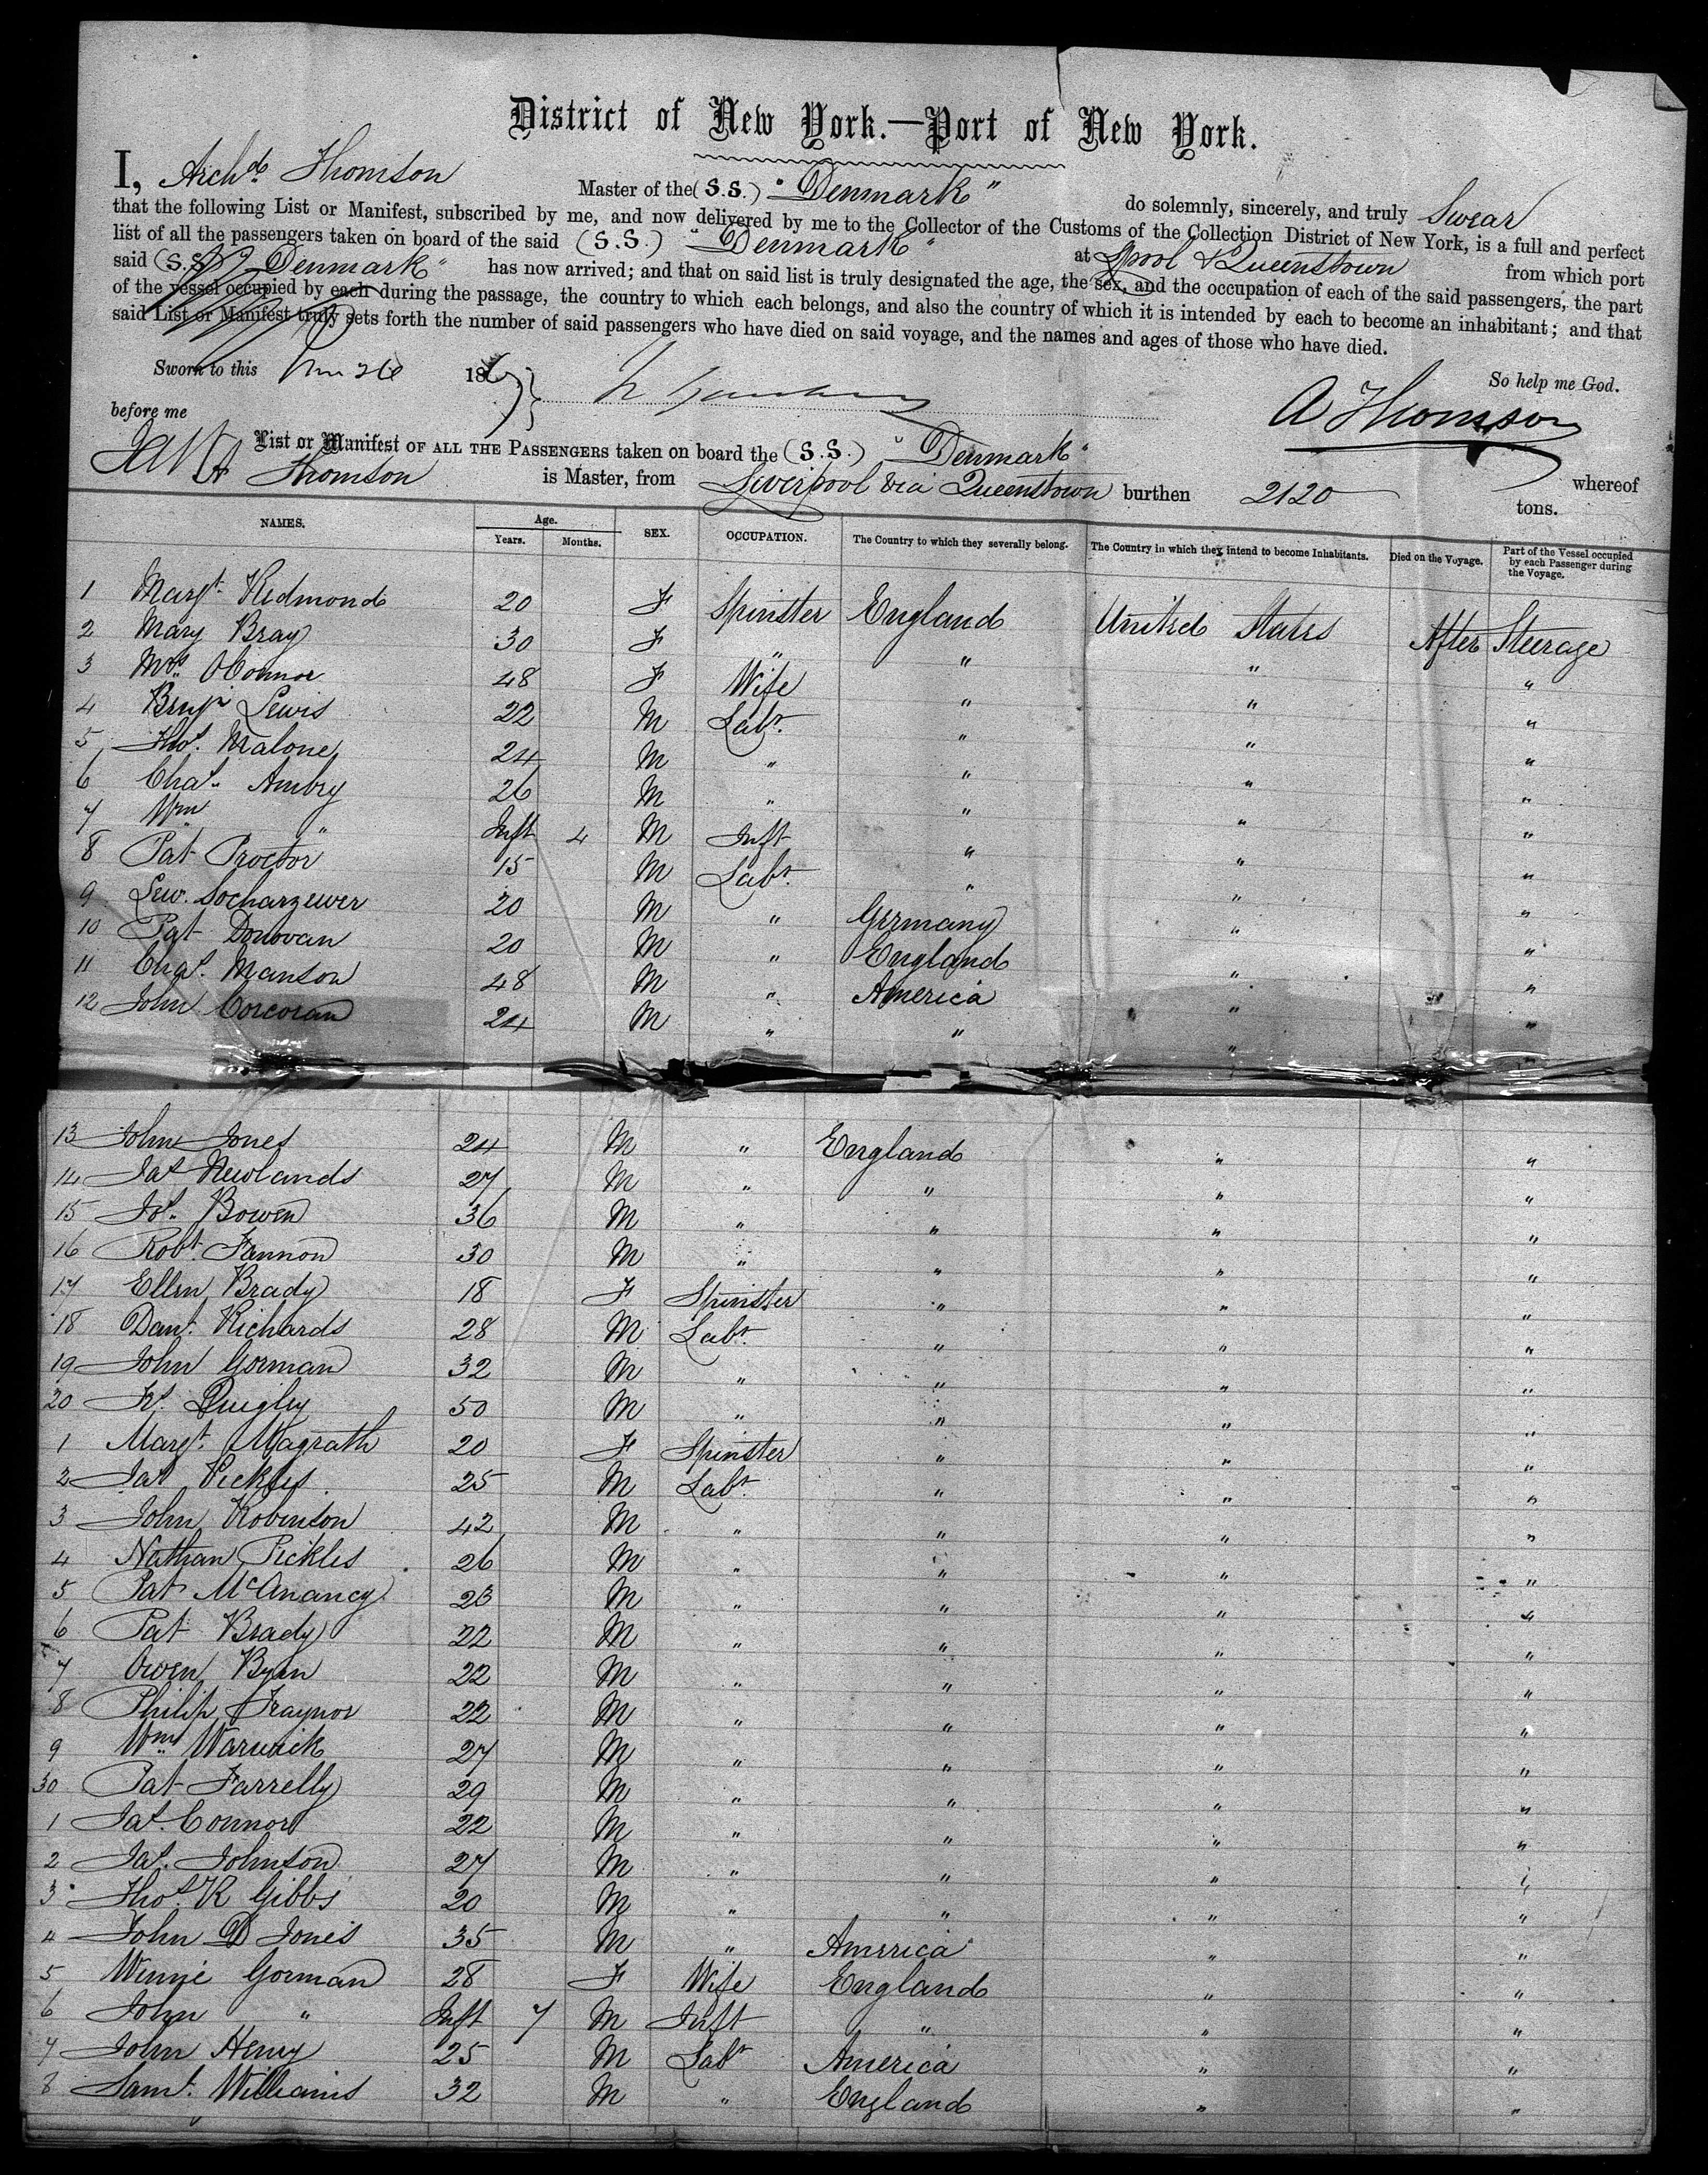 District of New York.—Port of New York.
I, Archd. Thomson Master of the (S.S.) "Denmark" do solemnly, sincerely, and truly Swear
that the following List or Manifest, subscribed by me, and now delivered by me to the Collector of the Customs of the Collection District of New York, is a full and perfect
list of all the passengers taken on board of the said (S.S.) "Denmark" at Lpool & Queenstown from which port
said (S.S.) "Denmark" has now arrived; and that on said list is truly designated the age, the sex, and the occupation of each of the said passengers, the part
of the vessel occupied by each during the passage, the country to which each belongs, and also the country of which it is intended by each to become an inhabitant; and that
said List or Manifest truly sets forth the number of said passengers who have died on said voyage, and the names and ages of those who have died.
Sworn to this 26 186 So help me God.
before me A Thomson
List or Manifest OF ALL THE PASSENGERS taken on board the (S.S.) "Denmark" whereof
A Thomson is Master, from Liverpool via Queenstown burthen 2120 tons.
NAMES. Age. Years. Months. SEX. OCCUPATION. The Country to which they severally belong. The Country in which they intend to become Inhabitants. Died on the Voyage. Part of the Vessel occupied by each Passenger during the Voyage.
1 Margt. Redmond 20 F Spinster England United States After Steerage
2 Mary Bray 30 F " " " "
3 Mrs. OConnor 48 F Wife " " "
4 Benjn Lewis 22 M Labr. " " "
5 Thos. Malone 24 M " " " "
6 Chas. Ambry 26 M " " " "
7 Wm " Inft 4 M Inft " " "
8 Pat Proctor 15 M Labr. " " "
9 Lew. Socharzewer 20 M " Germany " "
10 Pat Donovan 20 M " England " "
11 Chas. Manson 48 M " America " "
12 John Corcoran 24 M " " " "
13 John Jones 24 M " England " "
14 Jas Newlands 27 M " " " "
15 Jos. Bowen 36 M " " " "
16 Robt. Fannon 30 M " " " "
17 Ellen Brady 18 F Spinster " " "
18 Danl. Richards 28 M Labr. " " "
19 John Gorman 32 M " " " "
20 Frs. Quigley 50 M " " " "
1 Margt. Magrath 20 F Spinster " " "
2 Jas Pickles 25 M Labr. " " "
3 John Robinson 42 M " " " "
4 Nathan Pickles 26 M " " " "
5 Pat McAnancy 23 M " " " "
6 Pat Brady 22 M " " " "
7 Owen Byrn 22 M " " " "
8 Philip Traynor 22 M " " " "
9 Wm. Warwick 27 M " " " "
30 Pat Farrelly 29 M " " " "
1 Jas. Connor 22 M " " " "
2 Jas. Johnson 27 M " " " "
3 Thos. R Gibbs 20 M " " " "
4 John D Jones 35 M " America " "
5 Winnie Gorman 28 F Wife England " "
6 John " Inft 7 M Inft " " "
7 John Henry 25 M Labr America " "
8 Saml. Williams 32 M " England " "